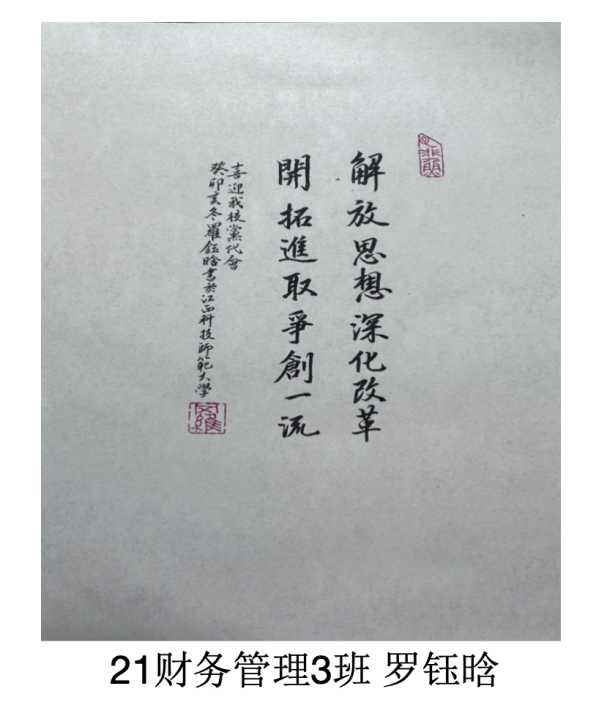 解放思想深化改革
開拓進取爭創一流
喜迎我校黨代會
癸卯亥冬羅鈺晗書於江西科技師範大學
21财务管理3班 罗钰晗